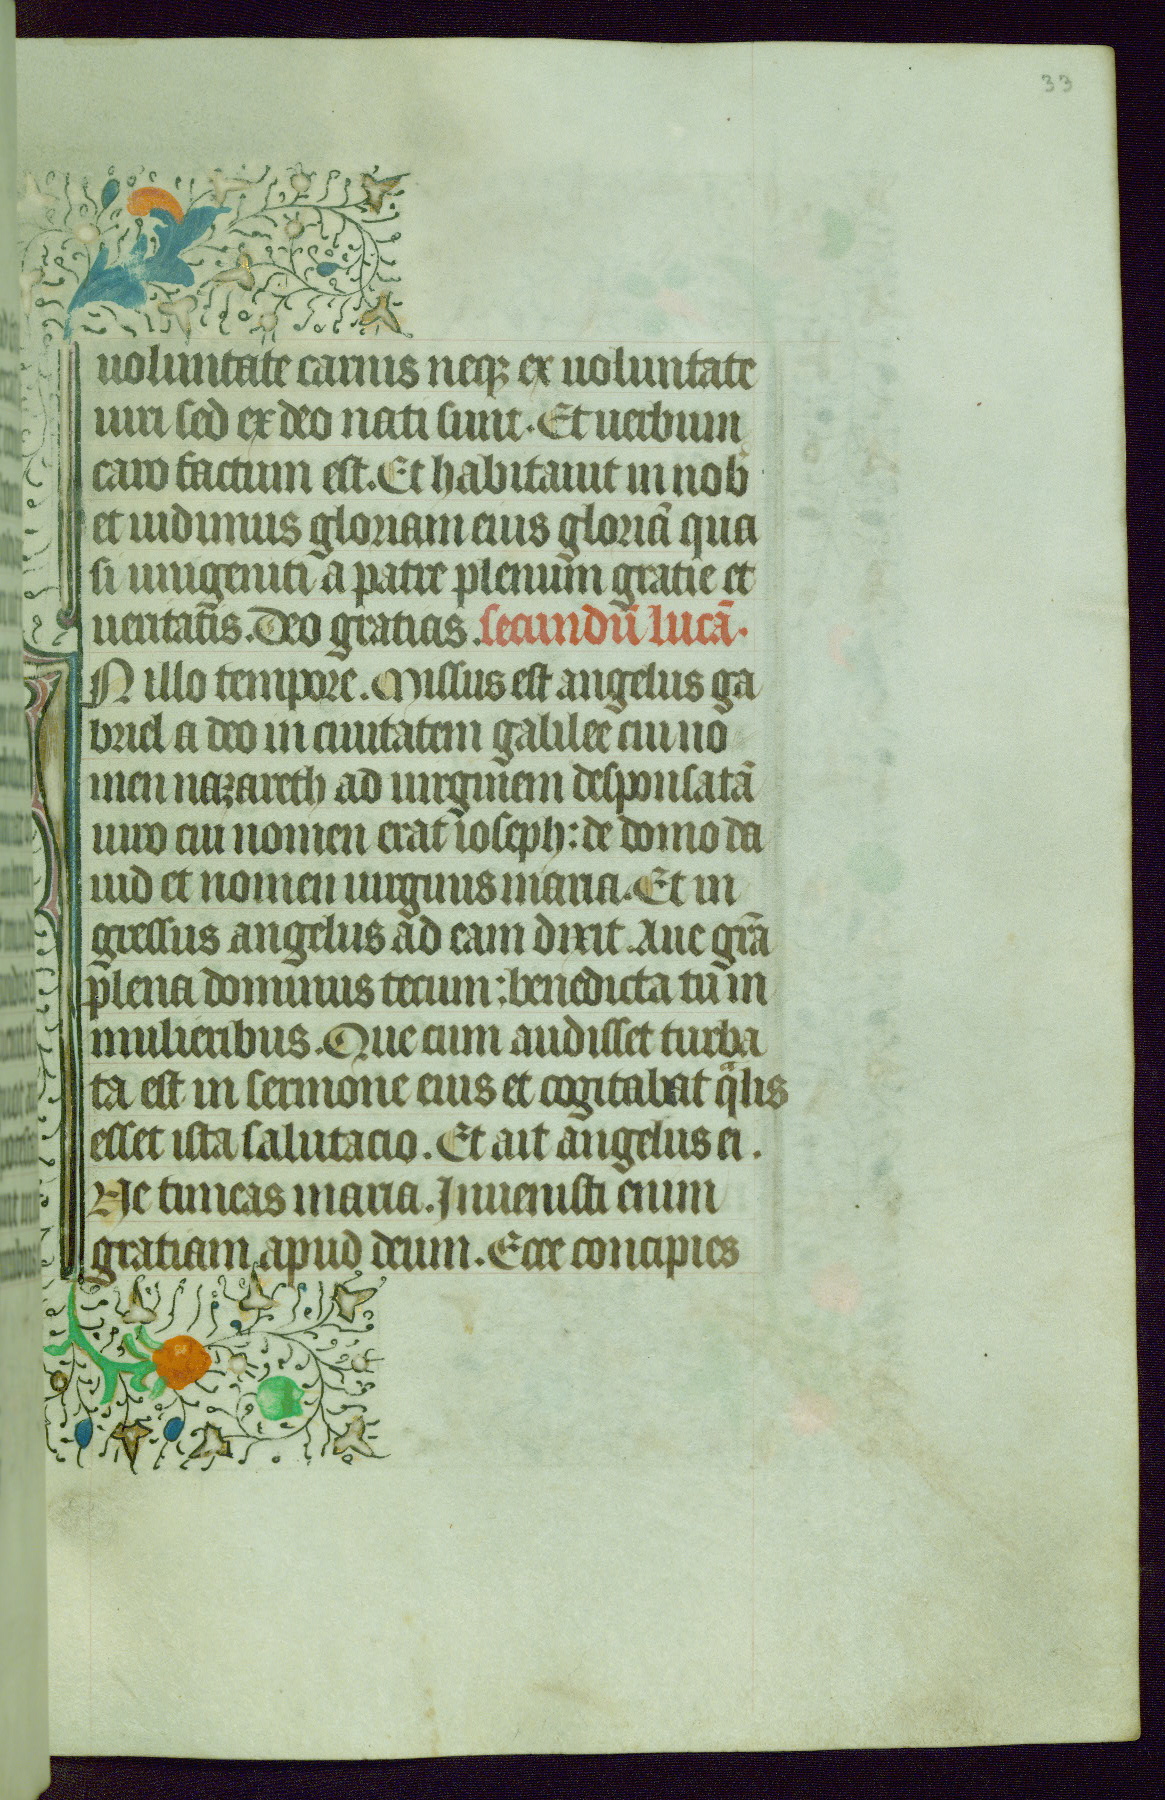 33
uoluntate carnis neqꝫ ex uoluntate
uiri sed ex deo nati sunt. Et uerbum
caro factum est. Et habitauit in nob̄
et uidimus gloriam eius gloriā qua
si unigeniti a patre plenum gratie et
ueritatis. Deo gratias. secundū lucā.
N illo tempore. Missus est angelus ga
briel a deo in ciuitatem galilee cui no
men nazareth ad uirginem desponsatā
uiro cui nomen erat ioseph: de domo da
uid et nomen uirginis maria. Et in
gressus angelus ad eam dixit. Aue gr̄a
plena dominus tecum: benedicta tu in
mulieribus. Que cum audisset turba
ta est in sermone eius et cogitabat q̄lis
esset ista salutacio. Et ait angelus ei.
Ne timeas maria. Inuenisti enim
gratiam apud deum. Ecce concipies